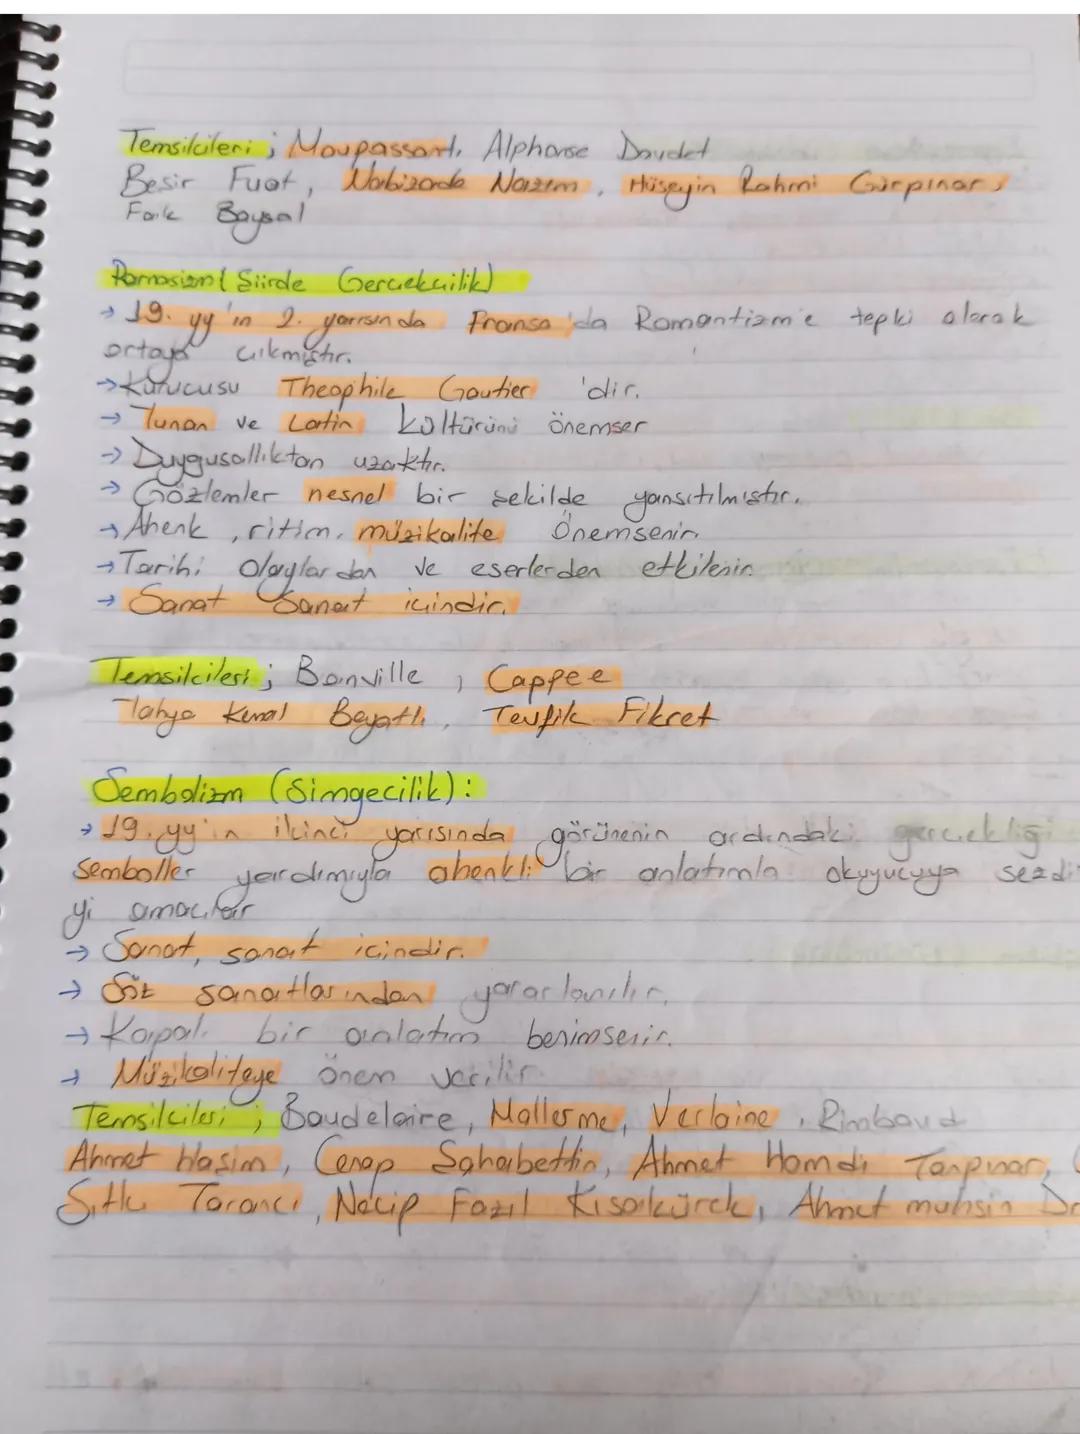 Temsilcileri ; Maupassant, Alphonse Daudet
Beşir Fuat, Nabizade Nazım, Hüseyin Rahmi Gürpınar,
Faik Baysal
Parnasizm (Şiirde Gerçekçilik)
→ 19. yy'ın 2. yarısında Fransa'da Romantizm'e tepki olarak
ortaya çıkmıştır.
→ Kurucusu Theophile Gautier 'dir.
→ Yunan ve Latin kültürünü önemser
→ Duygusallıktan uzaktır.
→ Gözlemler nesnel bir şekilde yansıtılmıştır.
→ Ahenk, ritim, müzikalite önemsenir.
→ Tarihi olaylardan ve eserlerden etkilenir.
→ Sanat Sanat içindir.
Temsilcileri ; Banville, Cappee
Yahya Kemal Beyatlı, Tevfik Fikret
Sembolizm (Simgecilik) :
→ 19. yy'ın ikinci yarısında görünenin ardındaki gerçekliği
semboller yardımıyla ahenkli bir anlatımla okuyucuya sezdi
yi amaçlar
→ Sanat, sanat içindir.
→ Söz sanatlarından yararlanılır.
→ Kapalı bir anlatım benimsenir.
→ Müzikaliteye önem verilir.
Temsilcileri ; Baudelaire, Mallerme, Verlaine, Rimbaud
Ahmet Haşim, Cenap Şahabettin, Ahmet Hamdi Tanpınar, C
Sıtkı Tarancı, Necip Fazıl Kısakürek, Ahmet muhsin Dr